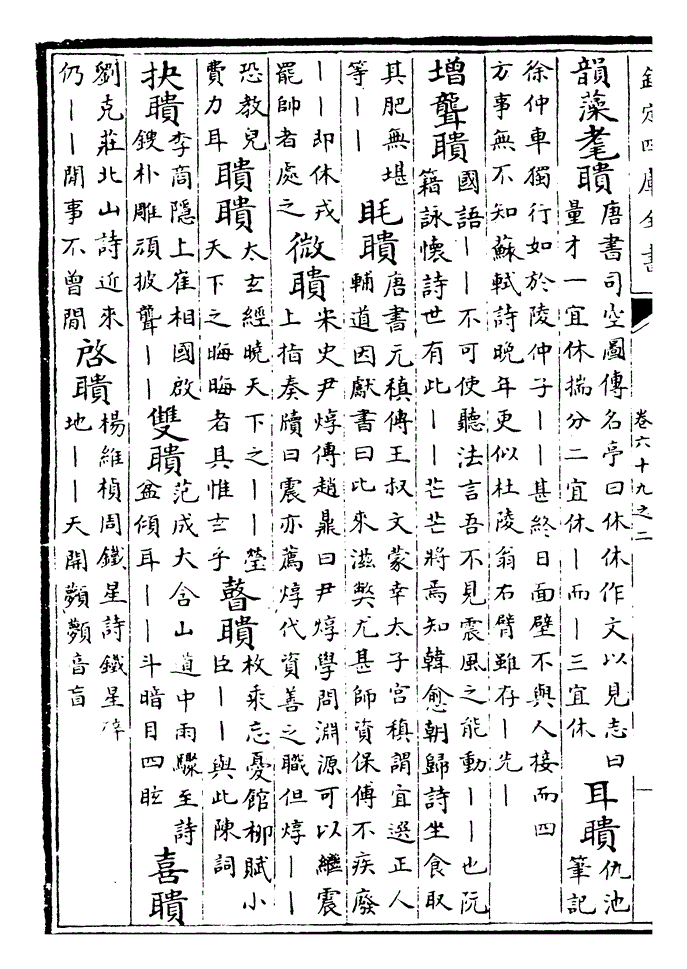 欽定四庫全書
卷六十九之二
韻藻耄聵唐書司空圖傳名亭曰休休作文以見志曰量才一宜休揣分二宜休丨而丨三宜休耳聵仇池筆記
徐仲車獨行如於陵仲子丨丨甚終日面壁不與人接而四方事無不知蘇軾詩晚年更似杜陵翁右臂雖存丨先丨
增聾聵國語丨丨不可使聽法言吾不見震風之能動丨丨也阮籍詠懷詩世有此丨丨芒芒將焉知韓愈朝歸詩坐食取
其肥無堪等丨丨眊聵唐書元稹傳王叔文蒙幸太子宮稹謂宜選正人輔道因獻書曰比來滋弊尤甚師資保傅不疾廢
丨丨即休戎罷帥者處之微聵宋史尹焞傳趙鼎曰尹焞學問淵源可以繼震上指奏牘曰震亦薦焞代資善之職但焞丨丨
恐教兒費力耳聵聵太玄經曉天下之丨丨瑩天下之晦晦者具惟玄乎瞽聵枚乘忘憂館柳賦小臣丨丨與此陳詞
抉聵李商隱上崔相國啟鋟朴雕頑披聾丨丨雙聵范成大含山道中雨驟至詩盆傾耳丨丨斗暗目四眩喜聵
劉克莊北山詩近來仍丨丨閒事不曾聞啓聵楊維楨周鐵星詩鐵星碎地丨丨天開音盲